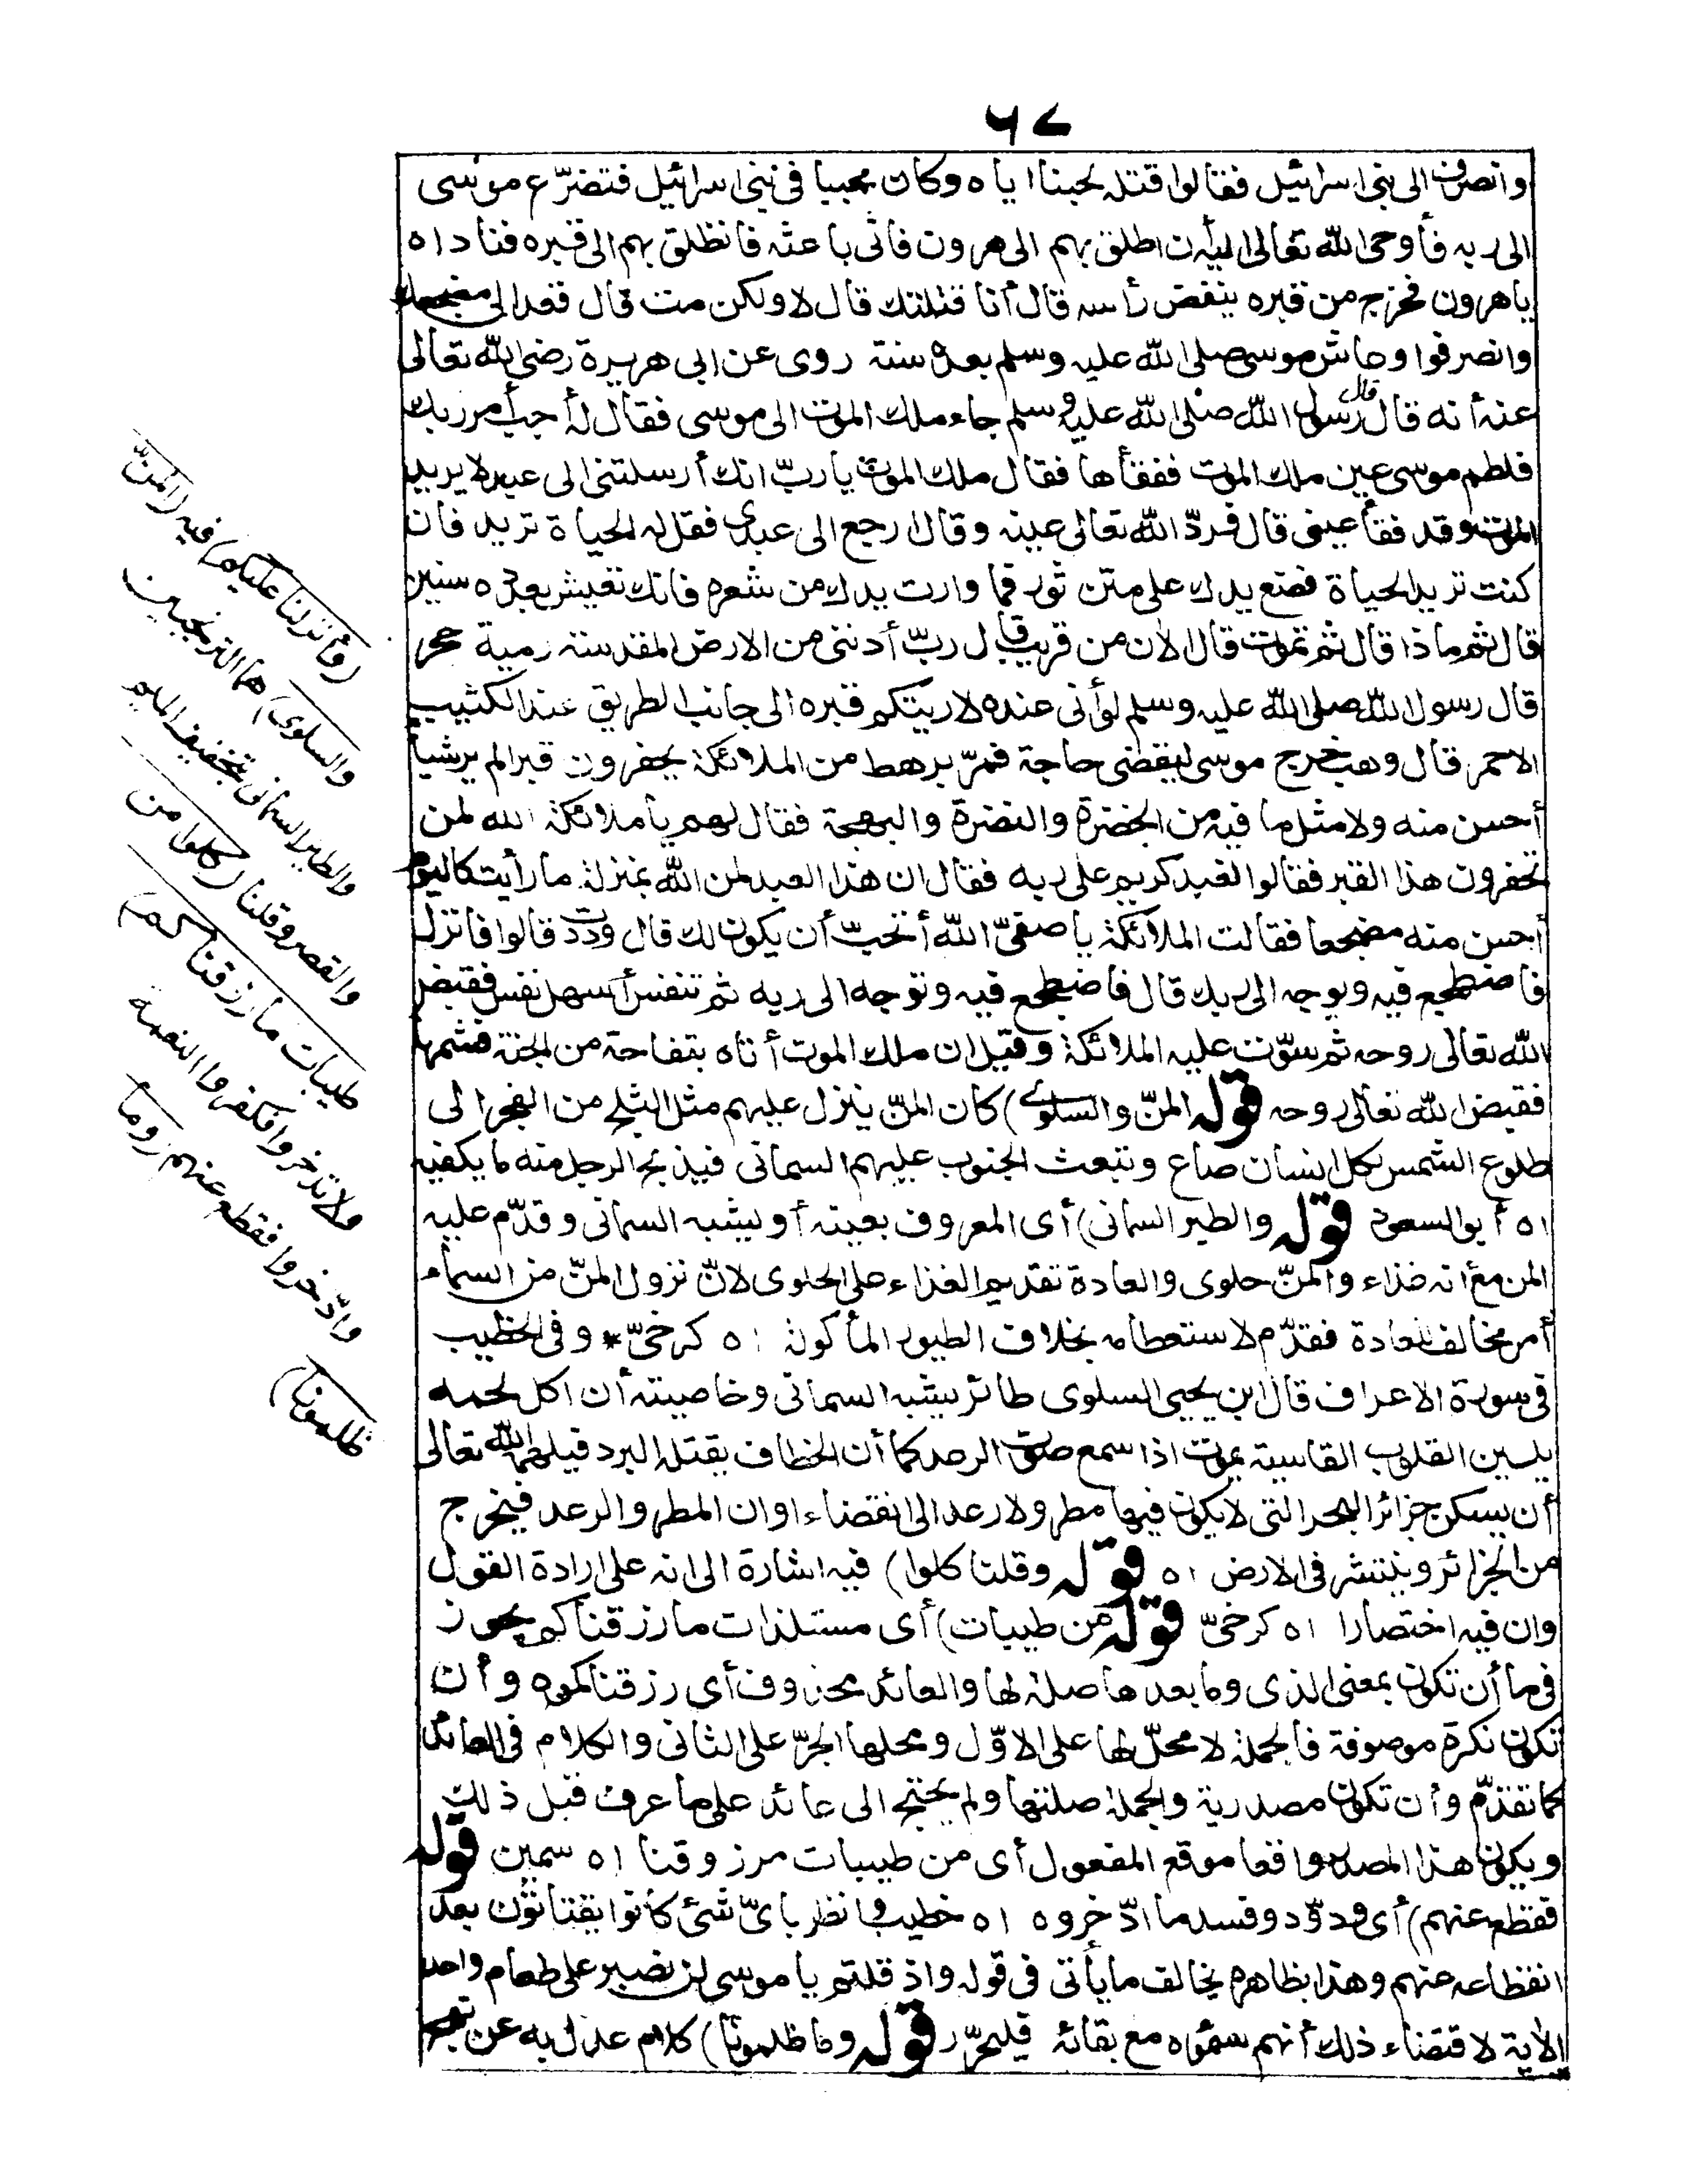 ٦٧
وانصرف الى بنى اسرائيل فقالوا قتله لحبنا اياه وكان محببا فى بنى اسرائيل فتضرّع موسى
الى ربه فأوحى الله تعالى اليه أن اطلق بهم الى هرون فانى باعثه فانطلق بهم الى قبره فناداه
ياهرون فخرج من قبره ينفض رأسه قال أنا قتلتك قال لا ولكن مت قال فعد الى مضجعك
وانصرفوا وعاش موسى صلى الله عليه وسلم بعده سنة روى عن ابى هريرة رضى الله تعالى
عنه أنه قال قال رسول الله صلى الله عليه وسلم جاء ملك الموت الى موسى فقال له أجب أمر ربك
فلطم موسى عين ملك الموت ففقأها فقال ملك الموت يا ربّ انك أرسلتنى الى عبد لا يريد
الموت وقد فقأ عينى قال فردّ الله تعالى عينه وقال ارجع الى عبدى فقل له الحياة تريد فان
كنت تريد الحياة فضع يدك على متن ثور فما وارت يدك من شعره فانك تعيش بعدده سنين
قال ثم ماذا قال ثم تموت قال الآن من قريب قال ربّ أدننى من الارض المقدسة رمية حجر
قال رسول الله صلى الله عليه وسلم لو أنى عنده لاريتكم قبره الى جانب الطريق عند الكثيب
الاحمر قال وهب خرج موسى ليقضى حاجة فمرّ برهط من الملائكة يحفرون قبرا لم ير شيأ
أحسن منه ولا مثل ما فيه من الخضرة والنضرة والبهجة فقال لهم يا ملائكة الله لمن
تحفرون هذا القبر فقالوا لعبد كريم على ربه فقال ان هذا العبد لمن الله بمنزلة ما رأيت كاليوم
أحسن منه مضجعا فقالت الملائكة يا صفىّ الله أتحبّ أن يكون لك قال وددت قالوا فانزل
فاضطجع فيه وتوجه الى ربك قال فاضطجع فيه وتوجه الى ربه ثم تنفس أسهل نفس فقبض
الله تعالى روحه ثم سوّت عليه الملائكة وقيل ان ملك الموت أتاه بتفاحة من الجنة فشمها
فقبض الله تعالى روحه قوله المنّ والسلوى) كان المنّ ينزل عليهم مثل الثلج من الفجر الى
طلوع الشمس لكل انسان صاع وتبعث الجنوب عليهم السمانى فيذبح الرجل منه ما يكفيه
اه أبو السعود قوله والطير السمانى) أى المعروف بعينه أو يشبه السمانى وقدّم عليه
المن مع أنه غذاء والمنّ حلوى والعادة تقديم الغذاء على الحلوى لانّ نزول المنّ من السماء
أمر مخالف للعادة فقدّم لاستعظامه بخلاف الطيور المأكولة اه كرخىّ * وفى الخطيب
فى سورة الاعراف قال ابن يحيى السلوى طائر يشبه السمانى وخاصيته أن اكل لحمه
يلين القلوب القاسية يموت اذا سمع صوت الرعد كما أن الخطاف يقتله البرد فيلهمه الله تعالى
أن يسكن جزائر البحر التى لا يكون فيها مطر ولا رعد الى انقضاء اوان المطر والرعد فيخرج
من الجزائر وينتشر فى الارض اه قوله وقلنا كلوا) فيه اشارة الى انه على ارادة القول
وان فيه اختصارا اه كرخىّ قوله من طيبات) أى مستلذات ما رزقناكم يجوز
فى ما أن تكون بمعنى الذى وما بعدها صلة لها والعائد محذوف أى رزقناكموه وأن
تكون نكرة موصوفة فالجملة لا محلّ لها على الاوّل ومحلها الجرّ على الثانى والكلام فى العائد
كما تقدّم وأن تكون مصدرية والجملة صلتها ولم يحتج الى عائد على ما عرف قبل ذلك
ويكون هذا المصدر واقعا موقع المفعول أى من طيبات مرزوقنا اه سمين قوله
فقطع عنهم) أى ودوّد وفسد ما ادّخروه اه خطيب وانظر باىّ شئ كانوا يقتاتون بعد
انقطاعه عنهم وهذا بظاهره يخالف ما يأتى فى قوله واذ قلتم يا موسى لن نصبر على طعام واحد
الآية لاقتضاء ذلك أنهم سئموه مع بقائه فليحرّر قوله وما ظلمونا) كلام عدل به عن نهج
(وأنزلنا عليكم) فيه (المنّ
والسلوى) هما الترنجبين
والطير السمانى بتخفيف الميم
والقصر وقلنا (كلوا من
طيبات ما رزقناكم)
ولا تدخروا فكفروا النعمة
وادّخروا فقطع عنهم (وما
ظلمونا)